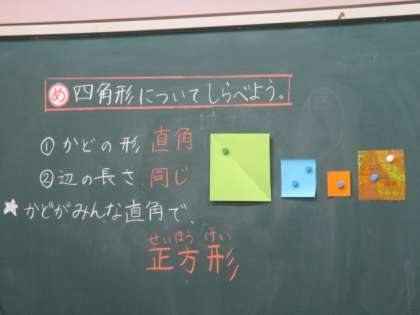 め 四角形についてしらべよう。
①かどの形 直角
②辺の長さ 同じ
★かどがみんな直角で、
せいほうけい
正方形